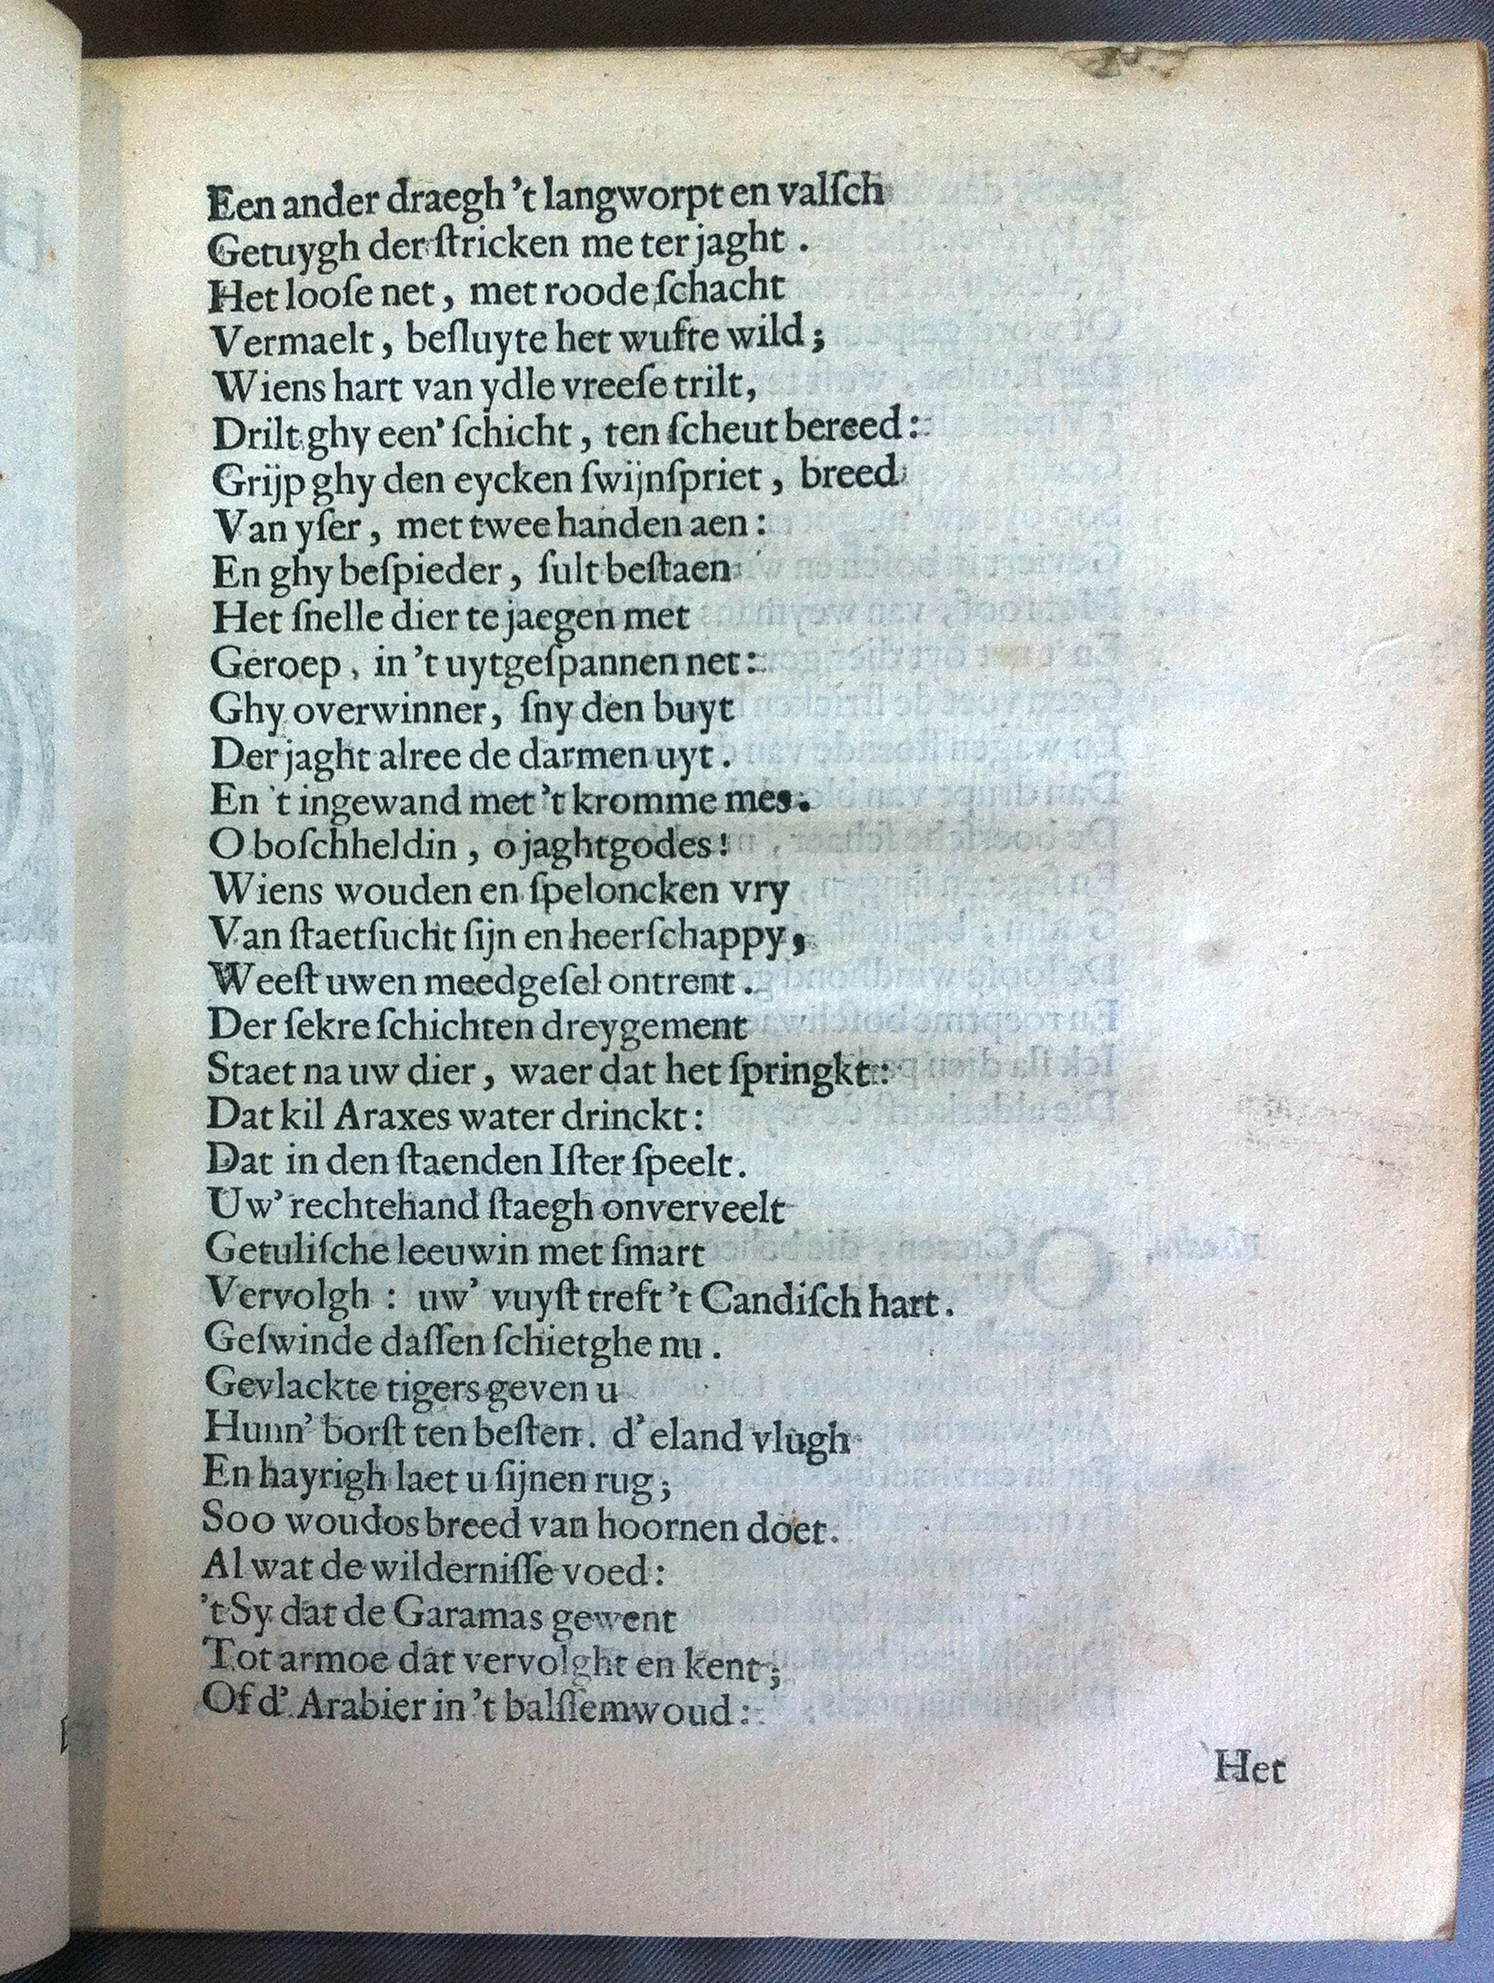 Een ander draegh 't langworpt en valſch
Getuygh der ſtricken me ter jaght .
Het looſe net , met roode ſchacht
Vermaelt , beſluyte het wufte wild ;
Wiens hart van ydle vreeſe trilt,
Drilt ghy een' ſchicht , ten ſcheut bereed :
Grijp ghy den eycken ſwijnſpriet , breed
Van yſer , met twee handen aen :
En ghy beſpieder , ſult beſtaen
Het ſnelle dier te jaegen met
Geroep , in 't uytgeſpannen net :
Ghy overwinner, ſny den buyt
Der jaght alree de darmen uyt .
En 't ingewand met 't kromme mes.
O boſchheldin , o jaghtgodes !
Wiens wouden en ſpeloncken vry
Van ſtaetſucht ſijn en heerſchappy,
Weeſt uwen meedgeſel ontrent .
Der ſekre ſchichten dreygement
Staet na uw dier , waer dat het ſpringkt :
Dat kil Araxes water drinckt :
Dat in den ſtaenden Iſter ſpeelt.
Uw' rechtehand ſtaegh onverveelt
Getuliſche leeuwin met ſmart
Vervolgh : uw' vuyſt treft 't Candiſch hart .
Geſwinde daſſen ſchietghe nu .
Gevlackte tigers geven u
Hunn' borſt ten beſten . d' eland vlugh
En hayrigh laet u ſijnen rug ;
Soo woudos breed van hoornen doet.
Al wat de wilderniſſe voed :
't Sy dat de Garamas gewent
Tot armoe dat vervolght en kent ;
Of d' Arabier in 't balſſemwoud :
Het